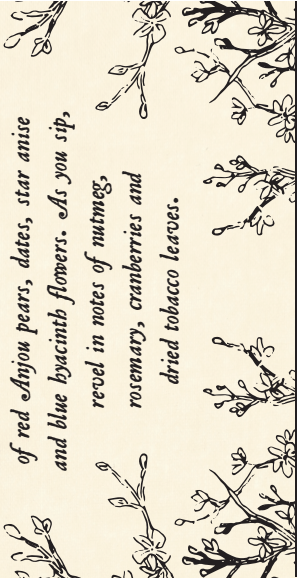 of red Anjou pears, dates, star anise
and blue hyacinth flowers. As you sip,
revel in notes of nutmeg,
rosemary, cranberries and
dried tobacco leaves.